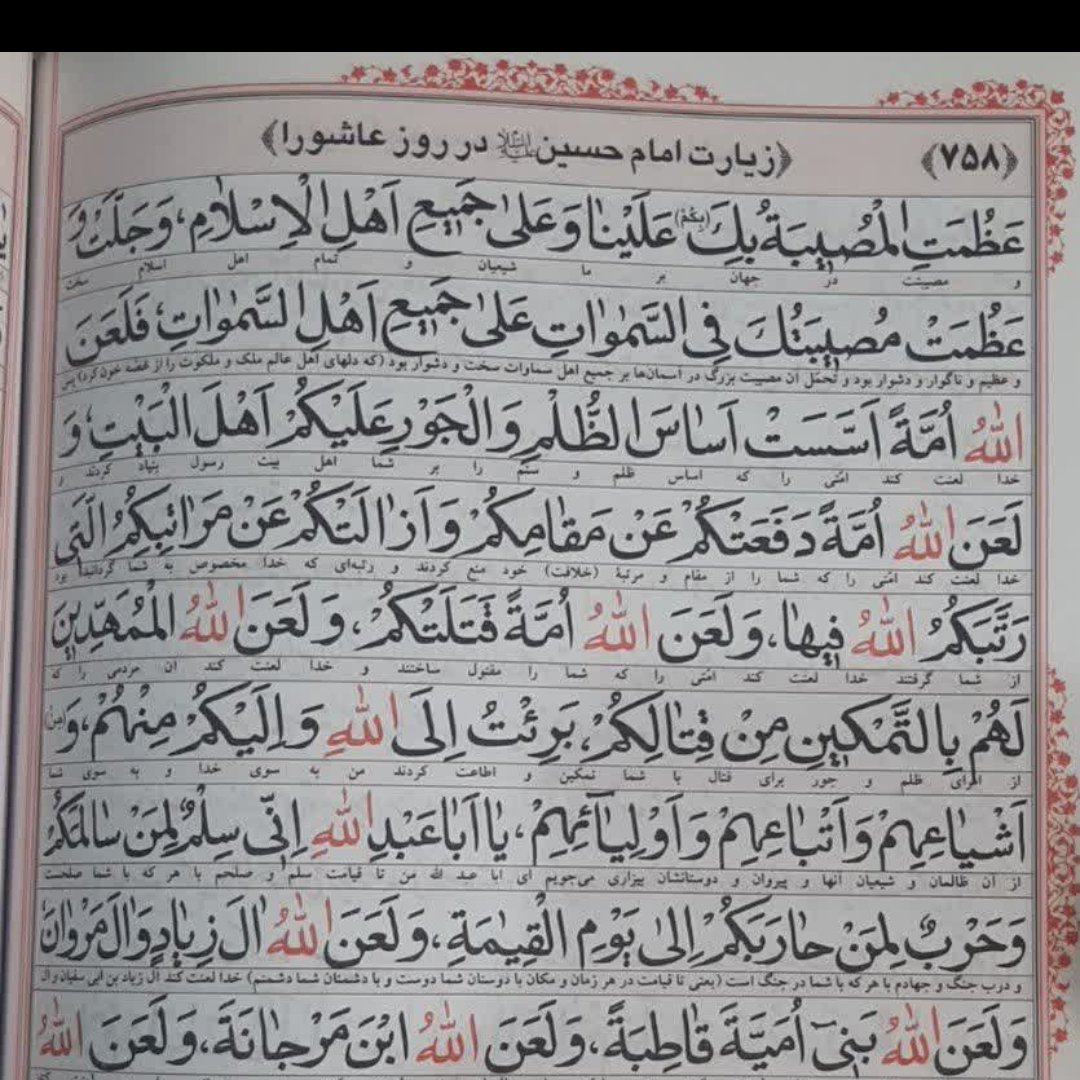 ﴿٧٥٨﴾ ﴿زیارت امام حسین علیه‌السلام در روز عاشورا﴾
عَظُمَتِ الْمُصیبَةُ بِكَ (بِكُمْ) عَلَیْنا وَ عَلیٰ جَمیعِ اَهْلِ الْاِسْلامِ، وَ جَلَّتْ وَ
و مصیبت در جهان بر ما شیعیان و تمام اهل اسلام سخت
عَظُمَتْ مُصیبَتُكَ فِی السَّمٰواتِ عَلیٰ جَمیعِ اَهْلِ السَّمٰواتِ، فَلَعَنَ
و عظیم و ناگوار و دشوار بود و تحمّل آن مصیبت بزرگ در آسمان‌ها بر جمیع اهل سماوات سخت و دشوار بود (که دلهای اهل عالم ملک و ملکوت را از غصّه خون کرد) پس
اللهُ اُمَّةً اَسَّسَتْ اَساسَ الظُّلْمِ وَ الْجَوْرِ عَلَیْكُمْ اَهْلَ الْبَیْتِ، وَ
خدا لعنت کند امّتی را که اساس ظلم و ستم را بر شما اهل بیت رسول بنیاد کردند و
لَعَنَ اللهُ اُمَّةً دَفَعَتْكُمْ عَنْ مَقامِكُمْ وَ اَزالَتْكُمْ عَنْ مَراتِبِكُمُ الَّتی
خدا لعنت کند امّتی را که شما را از مقام و مرتبهٔ (خلافت) خود منع کردند و رتبه‌ای که خدا مخصوص به شما گردانیده بود
رَتَّبَكُمُ اللهُ فیها، وَ لَعَنَ اللهُ اُمَّةً قَتَلَتْكُمْ، وَ لَعَنَ اللهُ الْمُمَهِّدینَ
از شما گرفتند خدا لعنت کند امّتی را که شما را مقتول ساختند و خدا لعنت کند آن مردمی را که
لَهُمْ بِالتَّمْكینِ مِنْ قِتالِكُمْ، بَرِئْتُ اِلَی اللهِ وَ اِلَیْكُمْ مِنْهُمْ، وَ (مِنْ)
از امرای ظلم و جور برای قتال با شما تمکین و اطاعت کردند من به سوی خدا و به سوی شما
اَشْیاعِهِمْ وَ اَتْباعِهِمْ وَ اَوْلِیآئِهِمْ، یا اَبا عَبْدِ اللهِ اِنّی سِلْمٌ لِمَنْ سالَمَكُمْ
از آن ظالمان و شیعیان آنها و پیروان و دوستانشان بیزاری می‌جویم ای ابا عبد الله من تا قیامت سلم و صلحم با هر که با شما صلحت
وَ حَرْبٌ لِمَنْ حارَبَكُمْ اِلیٰ یَوْمِ الْقِیٰمَةِ، وَ لَعَنَ اللهُ الَ زِیادٍ وَ الَ مَرْوانَ
و درب جنگ و جهادم با هر که با شما در جنگ است (یعنی تا قیامت در هر زمان و مکان با دوستان شما دوست و با دشمنان شما دشمنم) خدا لعنت کند آل زیاد بن ابی سفیان و آل
وَ لَعَنَ اللهُ بَنی اُمَیَّةَ قاطِبَةً، وَ لَعَنَ اللهُ ابْنَ مَرْجانَةَ، وَ لَعَنَ اللهُ